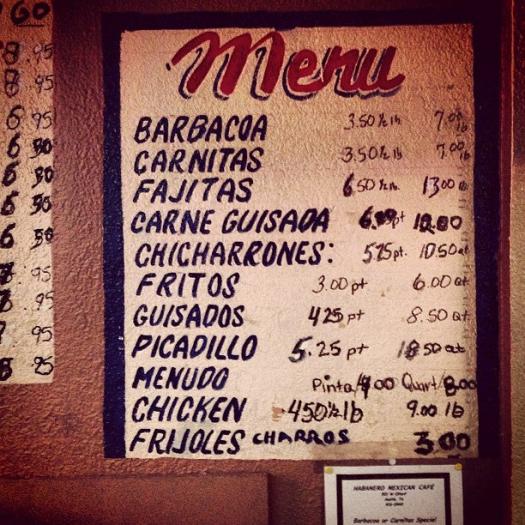 GO
95
95
95
50
50
50
95
95
95
Menu
BARBACOA 3.50 ½ lb 7.00 lb
CARNITAS 3.50 ½ lb 7.00 lb
FAJITAS 6.50 ½ lb. 13.00
CARNE GUISADA pt
CHICHARRONES: 5.25 pt. 10.50 qt
FRITOS 3.00 pt 6.00 qt
GUISADOS 4.25 pt 8.50 qt
PICADILLO 5.25 pt 50 qt
MENUDO Pinta/4.00 Quart/8.00
CHICKEN 4.50 ½ lb 9.00 lb
FRIJOLES CHARROS 3.00
HABANERO MEXICAN CAFE
Barbacoa or Carnitas Special